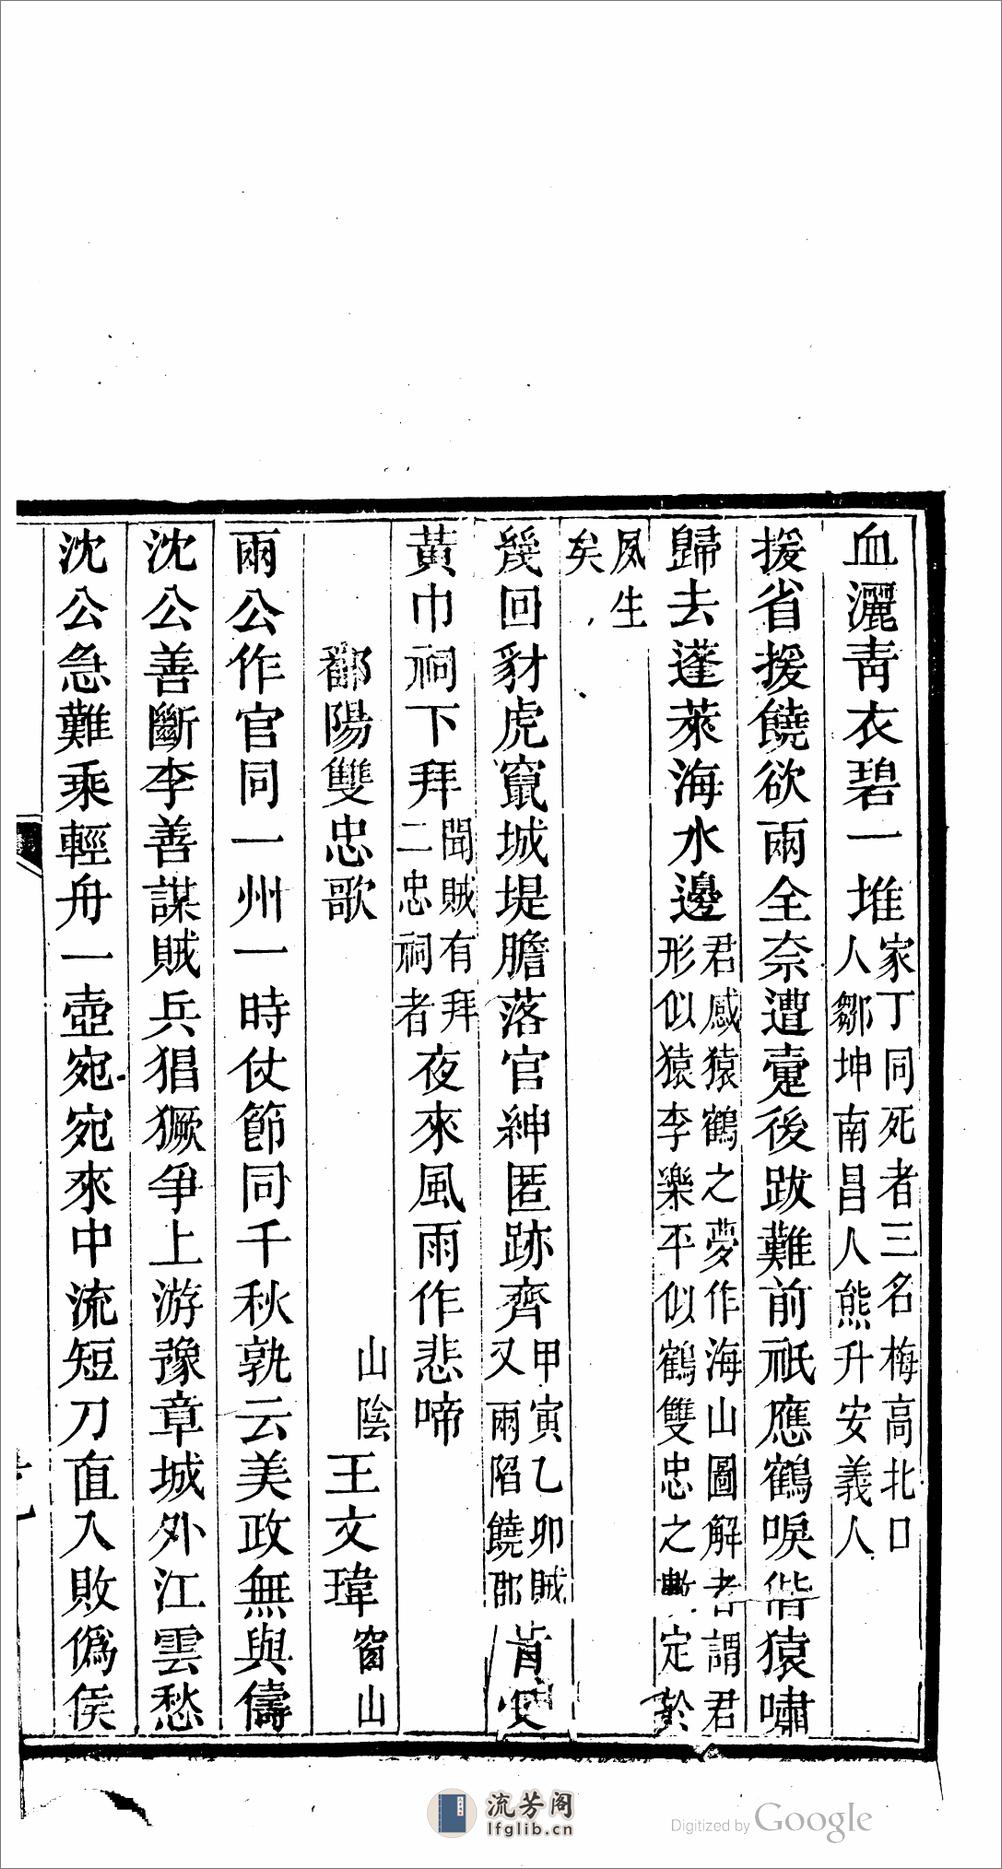 血灑靑衣碧一堆家丁同死者三名梅高北口人鄒坤南昌人熊升安義人
援省援饒欲兩全奈遭疐後跋難前祇應鶴唳偕猿嘯
歸去蓬萊海水邊君感猿鶴之夢作海山圖解者謂君形似猿李樂平似鶴雙忠之數定於
夙生矣
幾回豺虎竄城堤膽落官紳匿跡齊甲寅乙卯賊又兩陷饒郡肯
黃巾祠下拜聞賊有拜二忠祠者夜來風雨作悲啼
鄱陽雙忠歌
山陰王文瑋窗山
兩公作官同一州一時仗節同千秋孰云美政無與儔
沈公善斷李善謀賊兵猖獗爭上游豫章城外江雲愁
沈公急難乘輕舟一壺宛宛來中流短刀直入敗僞侯
流芳阁
lfglib.cn
Digitized by Google